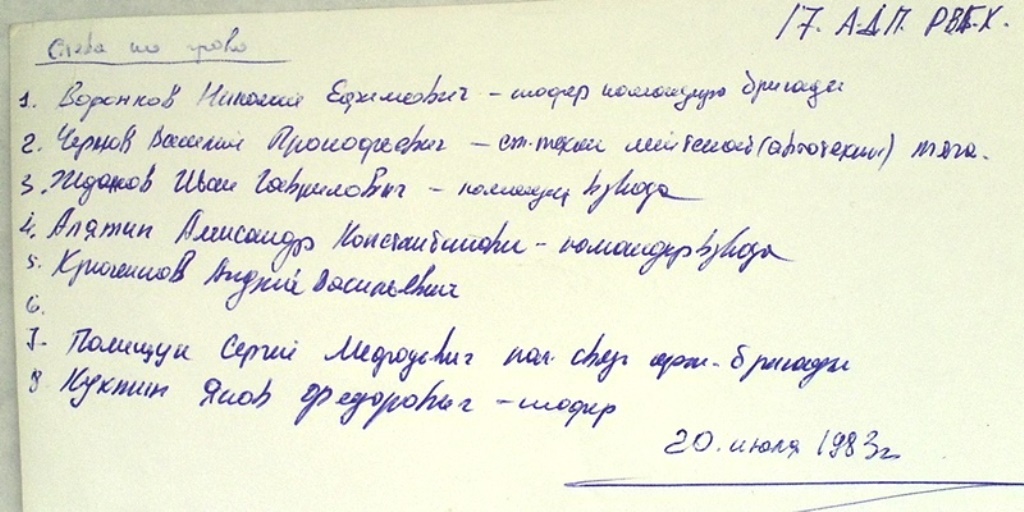 17. А.Д.П. РВГК.
Слева на право
1. Воронков Николай Ефимович - шофер командира бригады
2. Чернов Василий Прокофьевич - ст. техник лейтенант (автотехник) тяга.
3. Жданов Иван Гаврилович - командир взвода
4. Алятин Александр Константинович - командир взвода
5. Крюченков Андрей Васильевич
6.
7. Полищук Сергей Мефодьевич нач. связи арт. бригады
8 Кухтин Яков Федорович - шофер
20. июля 1983г